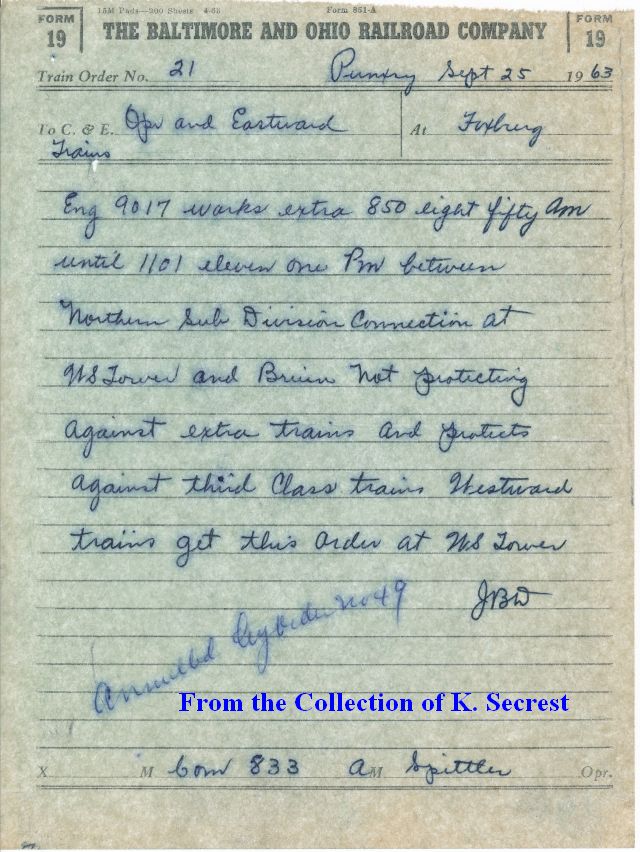 FORM 19
15M Pads—200 Sheets 4-63 Form 851-A
THE BALTIMORE AND OHIO RAILROAD COMPANY
FORM 19
Train Order No. 21 Punxy Sept 25 1963
To C. & E. Opr and Eastward At Foxburg
Trains
Eng 9017 works extra 850 eight fifty Am
until 1101 eleven one Pm between
Northern Sub Division Connection at
WS Tower and Bruin Not protecting
against extra trains and protects
against third Class trains Westward
trains get this order at WS Tower
JBW
Annulled by order no 49
From the Collection of K. Secrest
X M Com 833 AM Spittler Opr.